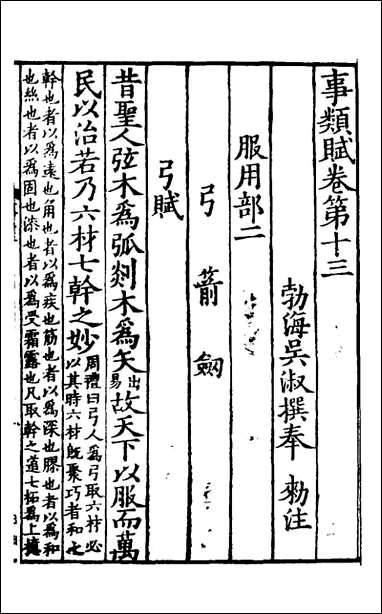 事類賦卷第十三
勃海吳淑撰奉 勑注
服用部二
弓 箭 劔
弓賦
昔聖人弦木爲弧剡木爲矢出易故天下以服而萬
民以治若乃六材七幹之妙周禮曰弓人爲弓取六材必以其時六材旣聚巧者和之
幹也者以爲遠也角也者以爲疾也筋也者以爲深也膠也者以爲和
也絲也者以爲固也漆也者以爲受霜露也凡取幹之道七柘爲上檍